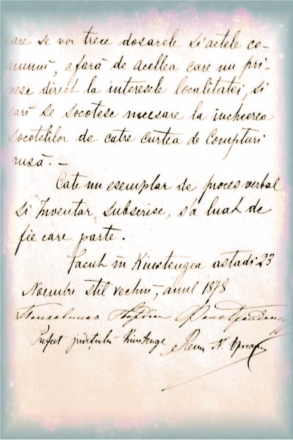 care se vor trece dosarele si actele co-
munii, afară de acellea care nu pri-
vesc direct la interesele localitatei, si
cari se socotesc necesare la incheerea
socotelilor de catre curtea de Compturi
rusă. –
Cate un esemplar de proces verbal
si Inventar, subscrise, s'a luat de
fie care parte.
Facut in Kiustengea astadi 23
Noembre stil vechiu, anul 1878
Prefect judeţului Kiustenge Remus N. Opreanu